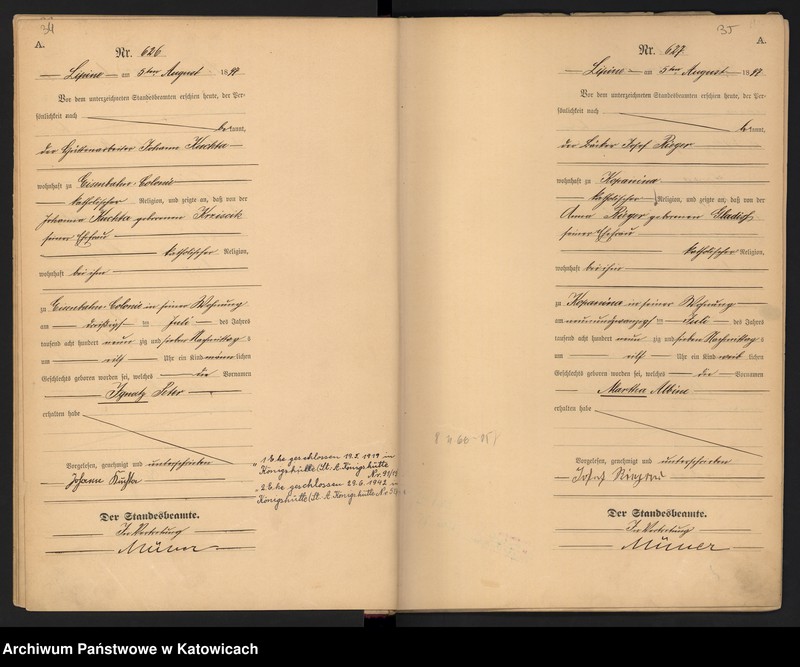 34
A.
Nr. 626
Lipine am 5ten August 1897
Vor dem unterzeichneten Standesbeamten erschien heute, der Per-
sönlichkeit nach
bekannt,
der Hüttenarbeiter Johann Kuchta
wohnhaft zu Eisenbahn-Colonie
katholischer Religion, und zeigte an, daß von der
Johanna Kuchta geborenen
seiner Ehefrau
katholischer Religion,
wohnhaft bei ihm
zu Eisenbahn-Colonie in seiner Wohnung
am dreißigsten Juli des Jahres
tausend acht hundert neun zig und sieben Nachmittags
um elf Uhr ein Kind männlichen
Geschlechts geboren worden sei, welches die Vornamen
Ignatz Peter
erhalten habe
Vorgelesen, genehmigt und unterschrieben
Johann Kuchta
Der Standesbeamte.
In Vertretung
1 Ehe geschlossen 19.2.1919 in
Königshütte (St. A. Königshütte
Nr. 91/19
2 Ehe geschlossen 29.6.1942 in
Königshütte (St. A. Königshütte Nr.
35
A.
Nr. 627
Lipine am 5ten August 1897
Vor dem unterzeichneten Standesbeamten erschien heute, der Per-
sönlichkeit nach
bekannt,
der Bäcker Josef Rieger
wohnhaft zu Kopanina
katholischer Religion, und zeigte an, daß von der
Anna Rieger geborenen Gladisch
seiner Ehefrau
katholischer Religion,
wohnhaft bei ihm
zu Kopanina in seiner Wohnung
am neunundzwanzigsten Juli des Jahres
tausend acht hundert neun zig und sieben Nachmittag
um elf Uhr ein Kind weiblichen
Geschlechts geboren worden sei, welches die Vornamen
Martha Albine
erhalten habe
Vorgelesen, genehmigt und unterschrieben
Josef
Der Standesbeamte.
In Vertretung
Archiwum Państwowe w Katowicach